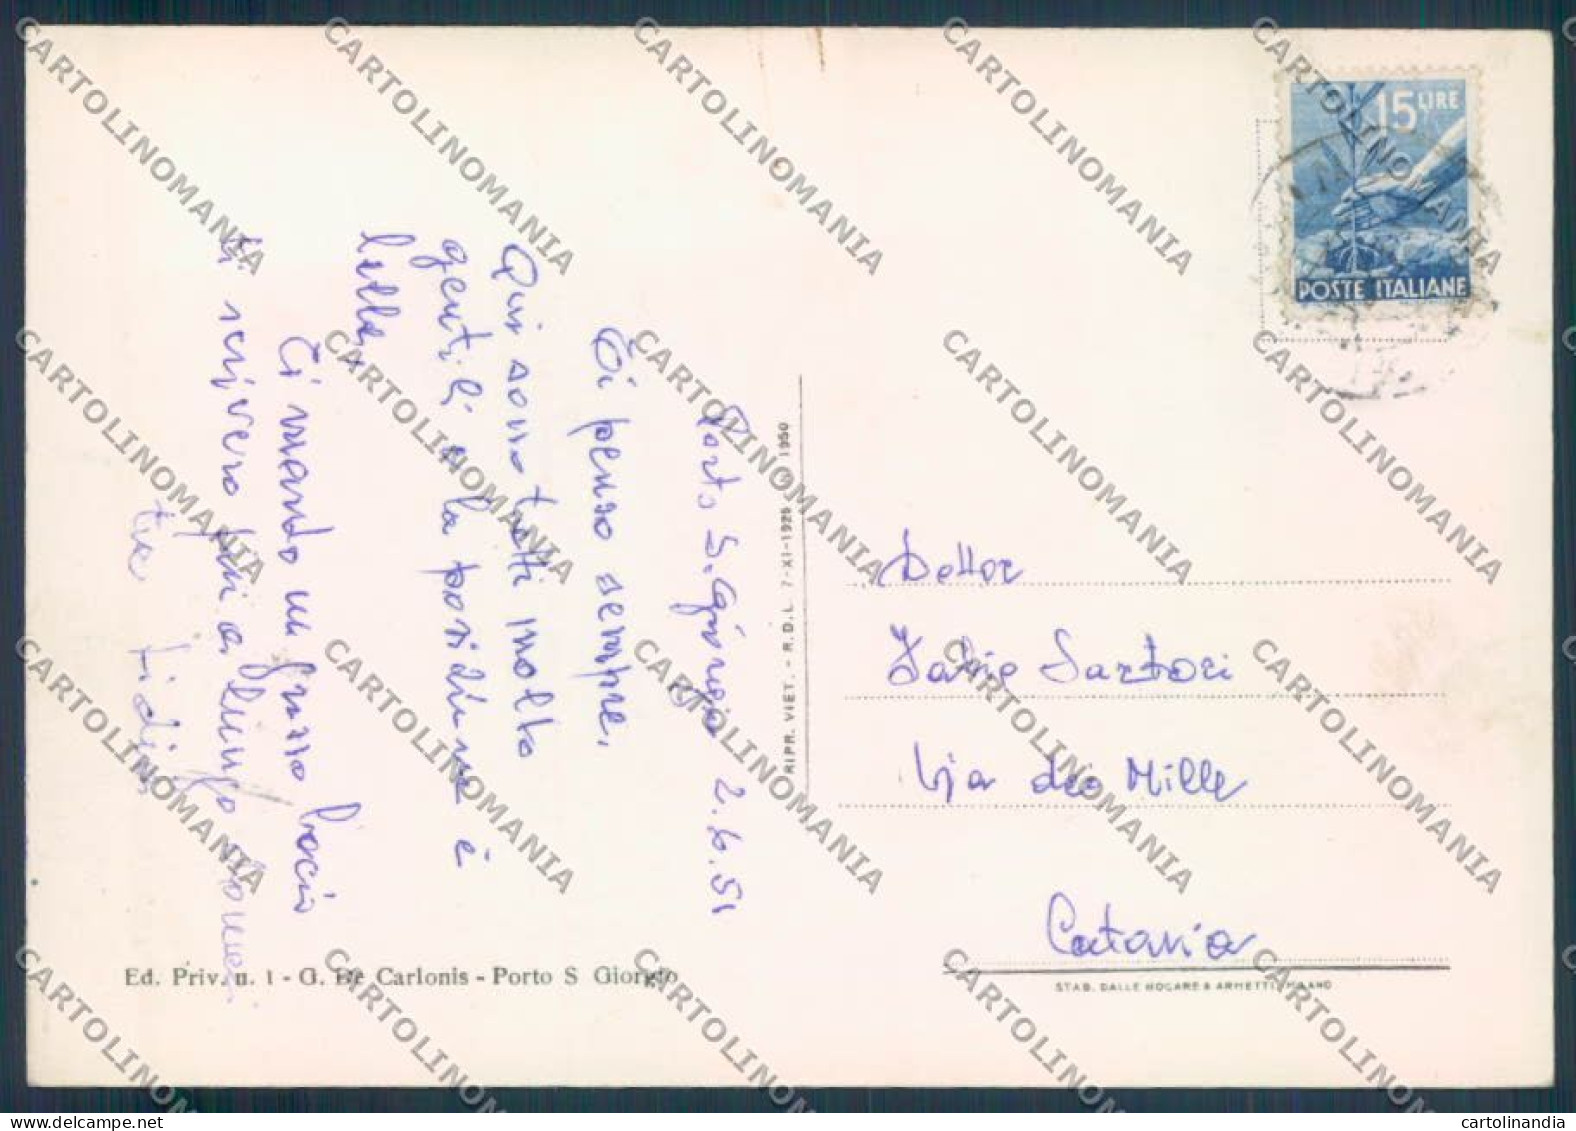 15 LIRE
POSTE ITALIANE
Porto S. Giorgio 2.6.51
Ti penso sempre.
Qui sono tutti molto
gentili e la posizione è
bella.
Ti mando un grosso bacio
ti scriverò più a lungo domani
tua
Dottor
Sartori
Via dei Mille
Catania
RIPR. VIET. - R. D. L. 7-XI-1925 1950
Ed. Priv. n. 1 - G. De Carlonis - Porto S Giorgio
STAB. DALLE NOGARE & ARMETTI MILANO
CARTOLINOMANIA
cartolinandia
www.delcampe.net